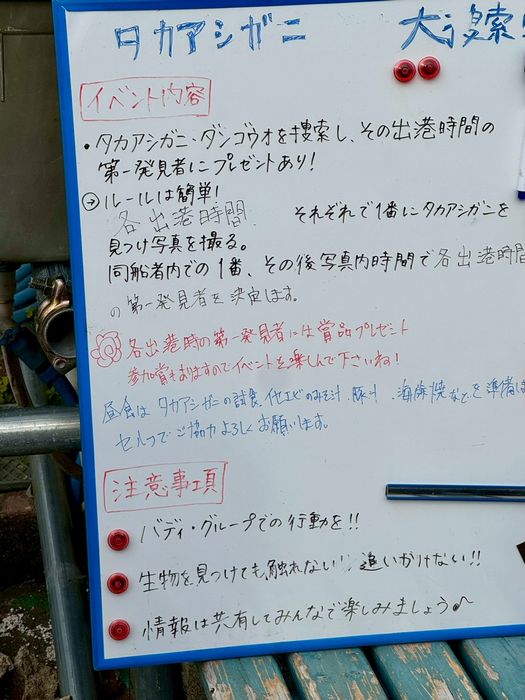 タカアシガニ 大捜索!
イベント内容
・タカアシガニ・ダンゴウオを捜索し、その出港時間の
第一発見者にプレゼントあり!
→ルールは簡単!
各出港時間、それぞれで1番にタカアシガニを
見つけ写真を撮る。
同船者内での1番、その後写真内時間で各出港時間
の第一発見者を決定します。
各出港時の第一発見者には賞品プレゼント
参加賞もありますのでイベントを楽しんで下さいね!
昼食はタカアシガニの試食、イセエビのみそ汁、豚汁、海鮮焼などを準備
セルフでご協力よろしくお願います。
注意事項
バディ・グループでの行動を!!
生物を見つけても触れない!追いかけない!!
情報は共有してみんなで楽しみましょう♪